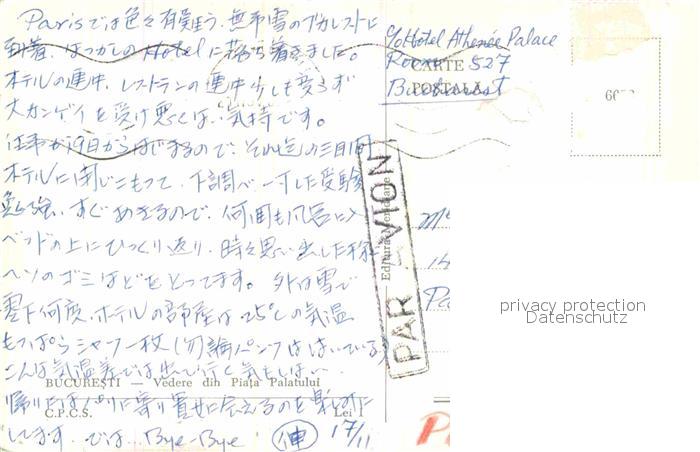 Parisでは色々有難う、無事雪のブカレストに
到着、なつかしのHotelに落ち着きました。
ホテルの連中、レストランの連中少しも変らず
大カンゲイを受け悪くない気持です。
仕事が19日からはじまるので、それ迄の三日間
ホテルに閉じこもって、下調べ
すぐあきるので、何回も風呂に入
ベッドの上にひっくり返り、時々思い出した様に
ヘソのゴミなどをとってます。外は雪で
零下何度、ホテルの部屋は25℃の気温
もっぱらシャツ一枚(勿論パンツははいている)
こんな気温差では出て行く気もしない。
帰りにはパリに寄り貴女に会えるのを楽しみに
してます。では... Bye-Bye! 伸 17/11
c/o Hotel Athenée Palace
Room 527
Bucharest
CARTE
POSTALA
PAR AVION
Editura
BUCUREŞTI — Vedere din Piața Palatului
C.P.C.S.
Lei 1
privacy protection
Datenschutz